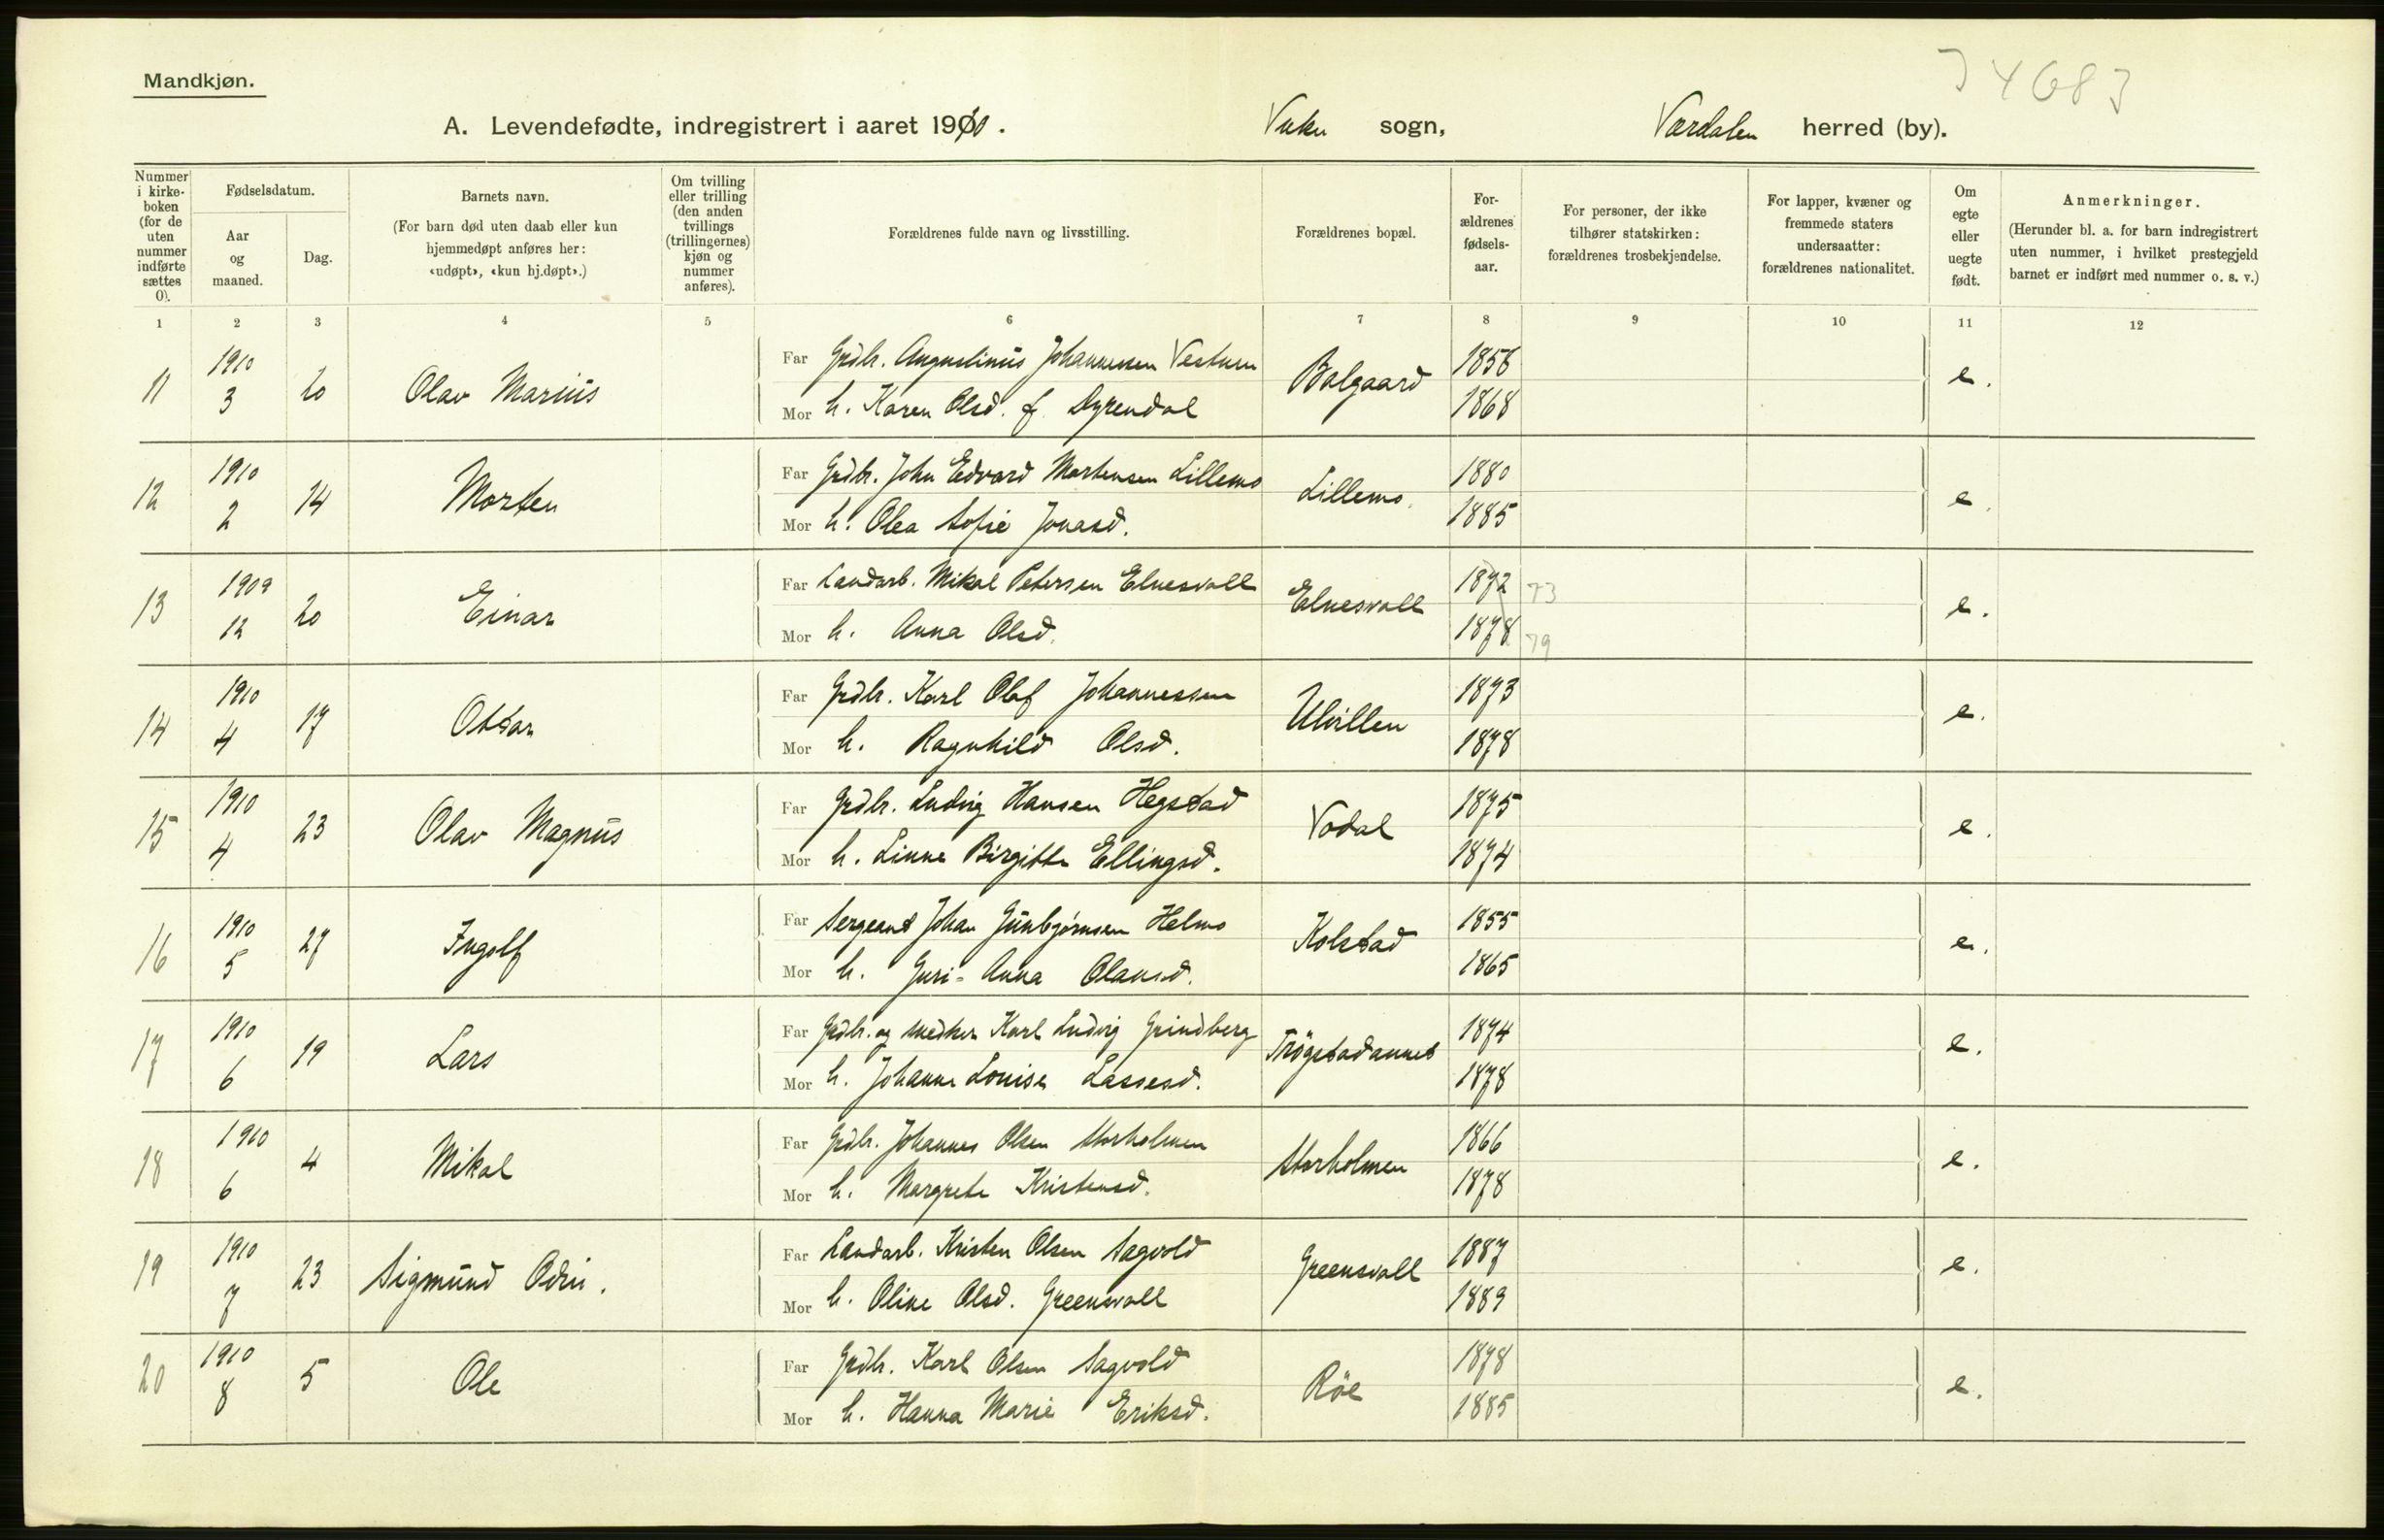 Mandkjøn.
74683
A. Levendefødte, indregistrert i aaret 1910. Vuku sogn, Værdalen herred (by).
Nummer i kirkeboken (for de uten nummer indførte sættes 0).
Fødselsdatum.
Aar og maaned.
Dag.
Barnets navn.
(For barn død uten daab eller kun hjemmedøpt anføres her: «udøpt», «kun hj.døpt».)
Om tvilling eller trilling (den anden tvillings (trillingernes) kjøn og nummer anføres).
Forældrenes fulde navn og livsstilling.
Forældrenes bopæl.
Forældrenes fødselsaar.
For personer, der ikke tilhører statskirken: forældrenes trosbekjendelse.
For lapper, kvæner og fremmede staters undersaatter: forældrenes nationalitet.
Om egte eller uegte født.
Anmerkninger.
(Herunder bl. a. for barn indregistrert uten nummer, i hvilket prestegjeld barnet er indført med nummer o. s. v.)
1 2 3 4 5 6 7 8 9 10 11 12
11 1910 3 20 Olav Marius Far Grdbr. Augustinus Johannesen Vestnen Balgaard 1856 e.
Mor h. Karen Olsd. f. Dyrendal 1868
12 1910 2 14 Morten Far Grdbr. John Edvard Martensen Lillemo Lillemo 1880 e.
Mor h. Olea Sofie Jonasd. 1885
13 1909 12 20 Einar Far Landarb. Mikal Petersen Elnesvold Elnesvall 1872 73 e.
Mor h. Anna Olsd. 1878 79
14 1910 4 17 Ottar Far Grdbr. Karl Olaf Johannessen Ulvillen 1873 e.
Mor h. Ragnhild Olsd. 1878
15 1910 4 23 Olav Magnus Far Grdbr. Ludvig Hansen Hegstad Vodal 1875 e.
Mor h. Linna Birgitte Ellingsd. 1874
16 1910 5 27 Ingolf Far Sergeant Johan Gunbjørnsen Helmo Kolstad 1855 e.
Mor h. Guri-Anna Olausd. 1865
17 1910 6 19 Lars Far Grdbr. og snedker Karl Ludvig Grindberg Trögstadannet 1874 e.
Mor h. Johanna Louise Lassesd. 1878
18 1910 6 4 Mikal Far Grdbr. Johannes Olsen Storholmen Storholmen 1866 e.
Mor h. Margrete Kristensd. 1878
19 1910 7 23 Sigmund Odin. Far Landarb. Kristen Olsen Sagvold Greensvall 1887 e.
Mor h. Oline Olsd. Greensvall 1889
20 1910 8 5 Ole Far Grdbr. Karl Olsen Sagvold Röe 1878 e.
Mor h. Hanna Marie Eriksd. 1885